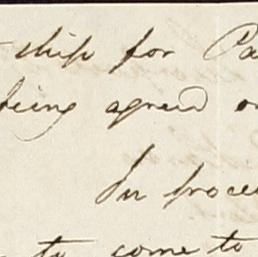 ship for Pa
being agreed o
In proce
to come to